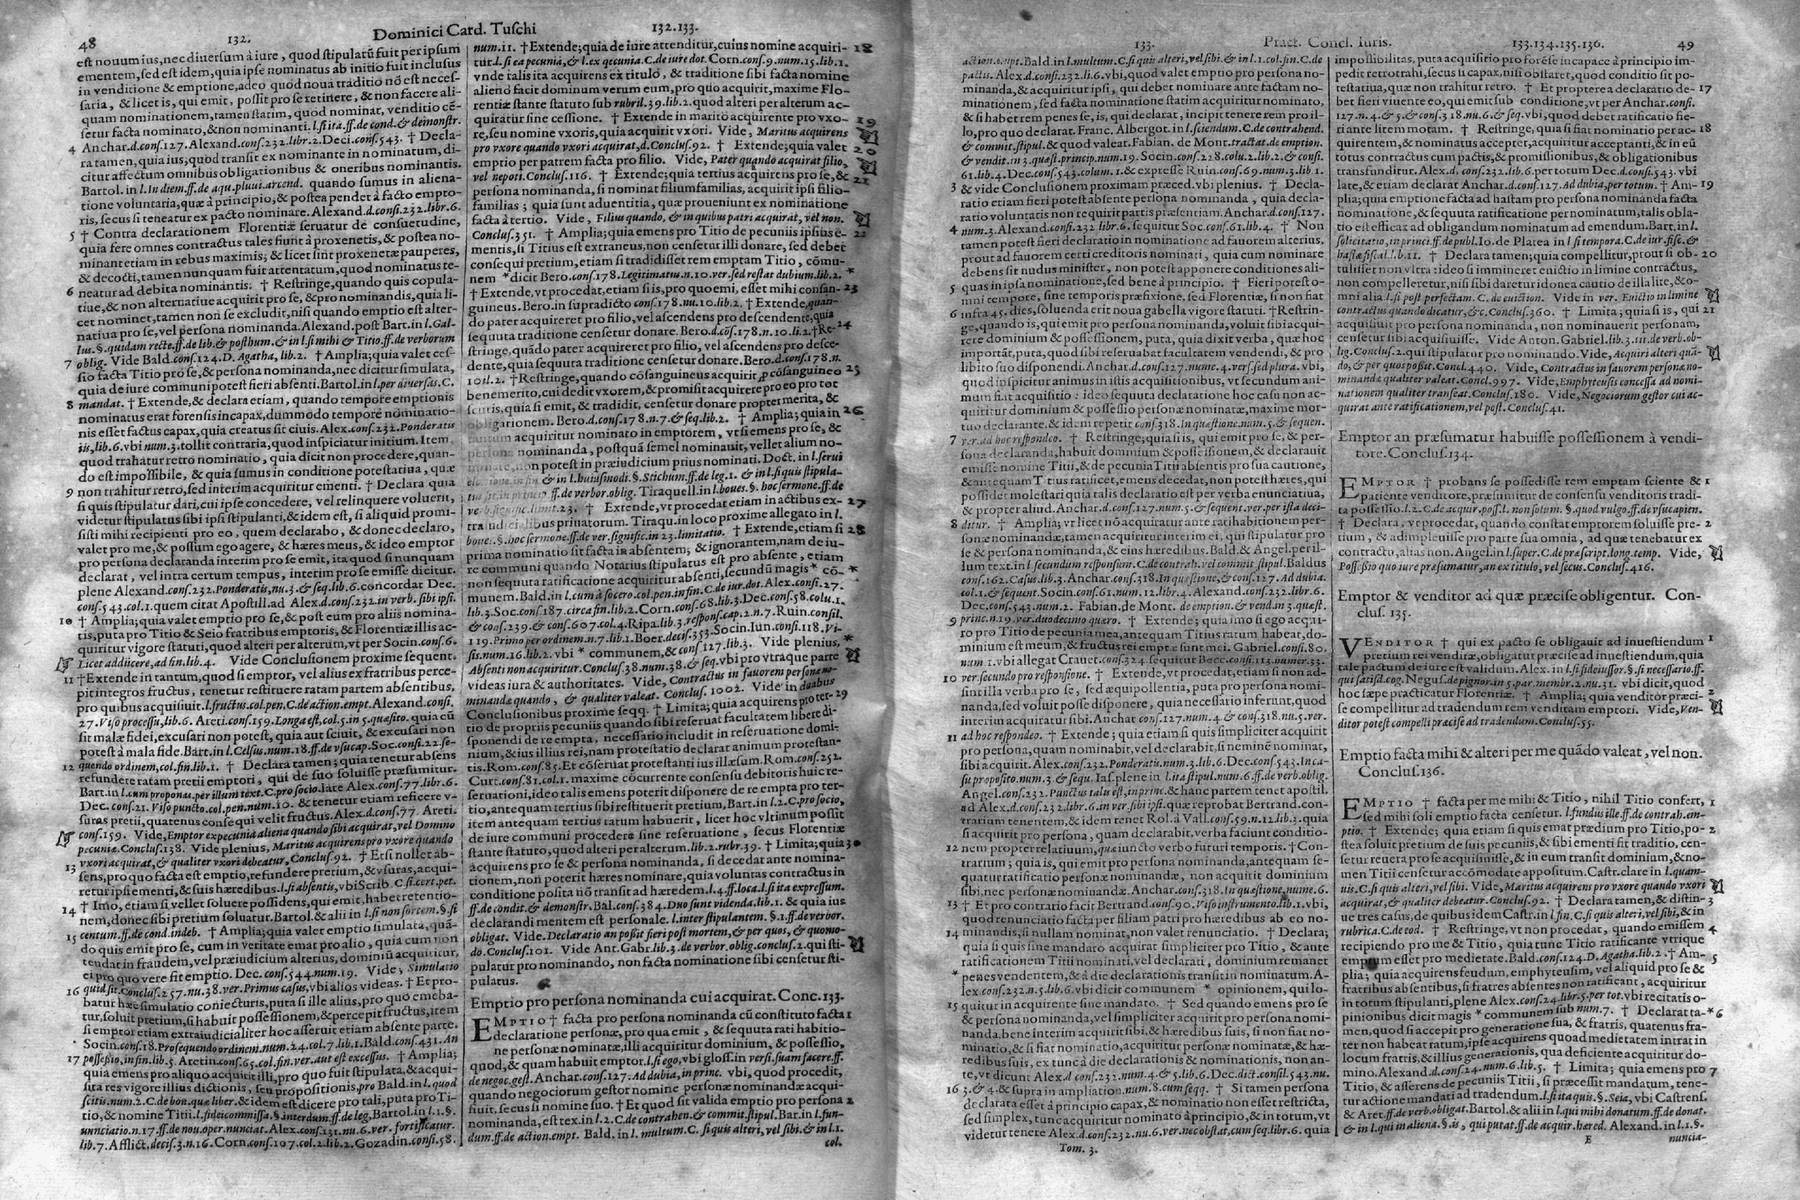 48
132.
Dominici Card. Tuschi
132.133.
est nouum ius, nec diuersum à iure, quod stipulatũ fuit per ipsum
ementem, sed est idem, quia ipse nominatus ab initio fuit inclusus
in venditione & emptione, adeo quod noua traditio nõ est neces-
saria, & licet is, qui emit, possit pro se retinere, & non facere ali-
quam nominationem, tamen statim, quod nominat, venditio cẽ-
setur facta nominato, & non nominanti. l. si ita. ff. de cond. & demonstr.
4 Anchar. d. cons. 127. Alexand. cons. 232. libr. 2. Deci. cons. 543. † Decla-
ra tamen, quia ius, quod transit ex nominante in nominatum, di-
citur affectum omnibus obligationibus & oneribus nominantis.
Bartol. in l. In diem. ff. de aqu. pluui. arcend. quando sumus in aliena-
tione voluntaria, quæ à principio, & postea pendet à facto empto-
ris, secus si teneatur ex pacto nominare. Alexand. d. cons. 232. libr. 6.
5 † Contra declarationem Florentiæ seruatur de consuetudine,
quia fere omnes contractus tales fiunt à proxenetis, & postea no-
minant etiam in rebus maximis; & licet sint proxenetæ pauperes,
& decocti, tamen nunquam fuit attentatum, quod nominatus te-
6 neatur ad debita nominantis. † Restringe, quando quis copula-
tiue, & non alternatiue acquirit pro se, & pro nominandis, quia li-
cet nominet, tamen non se excludit, nisi quando emptio est alter-
natiua pro se, vel persona nominanda. Alexand. post Bart. in l. Gal-
lus. §. quidam recte. ff. de lib. & posthum. & in l. si mihi & Titio. ff. de verborum
7 oblig. Vide Bald. cons. 124. D. Agatha, lib. 2. † Amplia; quia valet ces-
sio facta Titio pro se, & persona nominanda, nec dicitur simulata,
quia de iure communi potest fieri absenti. Bartol. in l. per diuersas. C.
8 mandat. † Extende, & declara etiam, quando tempore emptionis
nominatus erat forensis incapax, dummodo tempore nominatio-
nis esset factus capax, quia creatus sit ciuis. Alex. cons. 232. Ponderatis
iis, lib. 6. vbi num. 3. tollit contraria, quod inspiciatur initium. Item
quod trahatur retro nominatio, quia dicit non procedere, quan-
do est impossibile, & quia sumus in conditione potestatiua, quæ
9 non trahitur retro, sed interim acquiritur ementi. † Declara quia
si quis stipulatur dari, cui ipse concedere, vel relinquere voluerit,
videtur stipulatus sibi ipsi stipulanti, & idem est, si aliquid promi-
sisti mihi recipienti pro eo, quem declarabo, & donec declaro,
valet pro me, & possum ego agere, & hæres meus, & ideo emptor
pro persona declaranda interim pro se emit, ita quod si nunquam
declarat, vel intra certum tempus, interim pro se emisse dicitur.
plene Alexand. cons. 232. Ponderatis, nu. 3. & seq. lib. 6. concordat Dec.
cons. 543. col. 1. quem citat Apostill. ad Alex. d. cons. 232. in verb. sibi ipsi.
10 † Amplia; quia valet emptio pro se, & post eum pro aliis nomina-
tis, puta pro Titio & Seio fratribus emptoris, & Florentiæ illis ac-
quiritur vigore statuti, quod alteri per alterum, vt per Socin. cons. 6.
Licet addicere, ad fin. lib. 4. Vide Conclusionem proxime sequent.
11 † Extende in tantum, quod si emptor, vel alius ex fratribus perce-
pit integros fructus, tenetur restituere ratam partem absentibus,
pro quibus acquisiuit. l. fructus. col. pen. C. de action. empt. Alexand. consi.
27. Viso processu, lib. 6. Areti. cons. 159. Longa est, col. 5. in 5. quæsito. quia cũ
sit malæ fidei, excusari non potest, quia aut sciuit, & excusari non
potest à mala fide. Bart. in l. Celsus. num. 18. ff. de vsucap. Soc. cons. 22. se-
12 quendo ordinem, col. fin. lib. 1. † Declara tamen; quia tenetur absens
refundere ratam pretii emptori, qui de suo soluisse præsumitur.
Bart. in l. cum proponas. per illum text. C. pro socio. late Alex. cons. 77. lib. 6.
Dec. cons. 21. Viso puncto. col. pen. num. 10. & tenetur etiam reficere v-
suras pretii, quatenus consequi velit fructus. Alex. d. cons. 77. Areti.
cons. 159. Vide, Emptor ex pecunia aliena quando sibi acquirat, vel Domino
pecuniæ. Conclus. 138. Vide plenius, Maritus acquirens pro vxore quando
vxori acquirat, & qualiter vxori debeatur, Conclus. 92. † Et si nollet ab-
13 sens, pro quo facta est emptio, refundere pretium, & vsuras, acqui-
retur ipsi ementi, & suis hæredibus. l. si absentis, vbi Scrib. C. si cert. pet.
† Imo, etiam si vellet soluere possidens, qui emit, habet retentio-
14 nem, donec sibi pretium soluatur. Bartol. & alii in l. si non sortem. §. si
centum. ff. de cond. indeb. † Amplia; quia valet emptio simulata, quã-
15 do quis emit pro se, cum in veritate emat pro alio, quia cum non
tendat in fraudem, vel præiudicium alterius, dominiũ acquiritur,
ei pro quo vere sit emptio. Dec. cons. 544. num. 19. Vide, Simulatio
quid sit. Conclus. 257. nu. 38. ver. Primus casus, vbi alios videas. † Et pro-
16 batur hæc simulatio coniecturis, puta si ille alius, pro quo emeba-
tur, soluit pretium, si habuit possessionem, & percepit fructus, item
si emptor etiam extraiudicialiter hoc asseruit etiam absente parte.
Socin. cons. 18. Prosequendo ordinem. num. 24. col. 7. lib. 1. Bald. cons. 431. An
17 possessio, in fin. lib. 3. Aretin. cons. 65. col. fin. ver. aut est excessus. † Amplia;
quia emens pro aliquo acquirit illi, pro quo fuit stipulata, & acqui-
sita res vigore illius dictionis, seu propositionis, pro Bald. in l. quod
scitis. num. 2. C. de bon. quæ liber. & idem est dicere pro tali, puta pro Ti-
tio, & nomine Titii. l. fideicommissa. §. interdum. ff. de leg. Bartol. in l. 1. §.
nunciatio. n. 17. ff. de nou. oper. nunciat. Alex. cons. 231. nu. 6. ver. fortificatur.
lib. 7. Afflict. decis. 3. n. 16. Corn. cons. 107. col. 2. lib. 2. Gozadin. consi. 58.
num. 11. † Extende; quia de iure attenditur, cuius nomine acquiri- 18
tur. l. si ea pecunia, & l. ex qecunia. C. de iure dot. Corn. cons. 9. num. 15. lib. 1.
vnde talis ita acquirens ex titulo, & traditione sibi facta nomine
alieno facit dominum verum eum, pro quo acquirit, maxime Flo-
rentiæ stante statuto sub rubril. 39. lib. 2. quod alteri per alterum ac-
quiratur sine cessione. † Extende in marito acquirente pro vxo- 19
re, seu nomine vxoris, quia acquirit vxori. Vide, Maritus acquirens
pro vxore quando vxori acquirat, d. Conclus. 92. † Extende; quia valet 20
emptio per patrem facta pro filio. Vide, Pater quando acquirat filio,
vel nepoti. Conclus. 116. † Extende; quia tertius acquirens pro se, & 21
persona nominanda, si nominat filiumfamilias, acquirit ipsi filio-
familias; quia sunt aduentitia, quæ proueniunt ex nominatione
facta à tertio. Vide, Filius quando, & in quibus patri acquirat, vel non.
Conclus. 351. † Amplia; quia emens pro Titio de pecuniis ipsius e- 22
mentis, si Titius est extraneus, non censetur illi donare, sed debet
consequi pretium, etiam si tradidisset rem emptam Titio, cõmu-
nem * dicit Bero. cons. 178. Legitimatu. n. 10. ver. sed restat dubium. lib. 2. *
† Extende, vt procedat, etiam si is, pro quo emi, esset mihi consan- 23
guineus. Bero. in supradicto cons. 178. nu. 10. lib. 2. † Extende, quan-
do pater acquireret pro filio, vel ascendens pro descendente, quia
sequuta traditione censetur donare. Bero. d. cõs. 178. n. 10. li. 2. † Re- 24
stringe, quãdo pater acquireret pro filio, vel ascendens pro desce-
dente, quia sequuta traditione censetur donare. Bero. d. cons. 178. n.
10. il. 2. † Restringe, quando cõsanguineus acquirit, p cõsanguineo 25
benemerito, cui dedit vxorem, & promisit acquirere pro eo pro tot
scutis, quia si emit, & tradidit, censetur donare propter merita, &
obligationem. Bero. d. cons. 178. n. 7. & seq. lib. 2. † Amplia; quia in 26
acquiritur nominato in emptorem, vt si emens pro se, &
nominanda, postquã semel nominauit, vellet alium no-
non potest in præiudicium prius nominati. Doct. in l. serui
& in l. huiusmodi. §. Stichum. ff. de leg. 1. & in l. si quis stipula-
ff. de verbor. oblig. Tiraquell. in l. boues. §. hoc sermone. ff. de
verb. signific. limit. 23. † Extende, vt procedat etiam in actibus ex- 27
traiudicialibus priuatorum. Tiraqu. in loco proxime allegato in l.
boues. §. hoc sermone. ff. de ver. signific. in 23. limitatio. † Extende, etiam si 28
prima nominatio sit facta in absentem, & ignorantem, nam de iu-
re communi quando Notarius stipulatus est pro absente, etiam
non sequuta ratificatione acquiritur absenti, secundũ magis * cõ- *
munem. Bald. in l. cum à socero. col. pen. in fin. C. de iur. dot. Alex. cons. 27.
lib. 3. Soc. cons. 187. circa fin. lib. 2. Corn. cons. 68. lib. 3. Dec. cons. 58. colu. 1.
& cons. 239. & cons. 607. col. 4. Ripa. lib. 3. respons. cap. 2. n. 7. Ruin. consil.
119. Primo per ordinem. n. 7. lib. 1. Boer. decis. 353. Socin. Iun. cons. 118. Vi-
sis. num. 16. lib. 2. vbi * communem, & cons. 127. lib. 3. Vide plenius, *
Absenti non acquiritur. Conclus. 38. num. 38. & seq. vbi pro vtraque parte
videas iura & authoritates. Vide, Contractus in fauorem personæ no-
minandæ quando, & qualiter valeat. Conclus. 1002. Vide in duabus
Conclusionibus proxime seqq. † Limita; quia acquirens protet- 29
tio de propriis pecuniis quando sibi reseruat facultatem libere di-
sponendi de re empta, necessario includit in reseruatione domi-
nium, & ius illius rei, nam protestatio declarat animum protestan-
tis. Rom. cons. 85. Et cõseruat protestanti ius illæsum. Rom. cons. 252.
Curt. cons. 81. col. 1. maxime cõcurrente consensu debitoris huic re-
seruationi, ideo talis emens poterit disponere de re empta pro ter-
tio, antequam tertius sibi restituerit pretium, Bart. in l. 2. C. pro socio,
item antequam tertius ratum habuerit, licet hoc vltimum possit
de iure communi procedere sine reseruatione, secus Florentiæ
stante statuto, quod alteri per alterum. lib. 2. rubr. 39. † Limita; quia 30
acquirens pro se & persona nominanda, si decedat ante nomina-
tionem, non poterit hæres nominare, quia voluntas contractus in
conditione polita nõ transit ad hæredem. l. 4. ff. loca. l. si ita expressum.
ff. de condit. & demonstr. Bal. cons. 384. Duo sunt videnda. lib. 1. & quia ius
declarandi mentem est personale. l. inter stipulantem. §. 1. ff. de verbor.
obligat. Vide. Declaratio an possit fieri post mortem, & per quos, & quomo-
do. Conclus. 101. Vide Ant. Gabr. lib. 3. de verbor. oblig. conclus. 2. qui sti-
pulatur pro nominando, non facta nominatione sibi censetur sti-
pulatus.
Emptio pro persona nominanda cui acquirat. Conc. 133.
EMPTIO † facta pro persona nominanda cũ constituto facta 1
declaratione personæ, pro qua emit, & sequuta rati habitio-
ne personæ nominatæ, illi acquiritur dominium, & possessio,
quod, & quam habuit emptor. l. si ego, vbi gloss. in versi. suam facere. ff.
de negoc. gest. Anchar. cons. 127. Ad dubia, in princ. vbi, quod procedit,
quando negociorum gestor nomine personæ nominandæ acqui-
siuit. secus si nomine suo. † Et quod sit valida emptio pro persona 2
nominanda, est tex. in l. 2. C. de contrahen. & commit. stipul. Bar. in l. fun-
dum. ff. de action. empt. Bald. in l. multum. C. si quis alteri, vel sibi. & in l. 1.
col.
133.
Pract. Concl. Iuris.
133.134.135.136.
49
action. empt. Bald. in l. multum. C. si quis alteri, vel sibi. & in l. 1. col. fin. C. de
pactis. Alex. d. consi. 232. li. 6. vbi, quod valet emptio pro persona no-
minanda, & acquiritur ipsi, qui debet nominare ante factam no-
minationem, sed facta nominatione statim acquiritur nominato,
& si habet rem penes se, is, qui declarat, incipit tenere rem pro il-
lo, pro quo declarat. Franc. Albergot. in l. sciendum. C. de contrahend.
& commit. stipul. & quod valeat. Fabian. de Mont. tractat. de emption.
& vendit. in 3. quæst. princip. num. 19. Socin. cons. 228. colu. 2. lib. 2. & consi.
61. lib. 4. Dec. cons. 543. column. 1. & expresse Ruin. cons. 69. num. 3. lib. 1.
3 & vide Conclusionem proximam præced. vbi plenius. † Decla-
ratio etiam fieri potest absente persona nominanda, quia decla-
ratio voluntatis non requirit partis præsentiam. Anchar. d. cons. 127.
4 num. 3. Alexand. cons. 232. libr. 6. sequitur Soc. cons. 61. lib. 4. † Non
tamen potest fieri declaratio in nominatione ad fauorem alterius,
prout ad fauorem certi creditoris nominati, quia cum nominare
debens sit nudus minister, non potest apponere conditiones ali-
5 quas in ipsa nominatione, sed bene à principio. † Fieri potest o-
mni tempore, sine temporis præfixione, sed Florentiæ, si non fiat
6 infra 45. dies, soluenda erit noua gabella vigore statuti. † Restrin-
ge, quando is, qui emit pro persona nominanda, voluit sibi acqui-
rere dominium & possessionem, puta, quia dixit verba, quæ hoc
importãt, puta, quod sibi reseruabat facultatem vendendi, & pro
libito suo disponendi. Anchar. d. cons. 127. nume. 4. ver. sed plura. vbi,
quod inspicitur animus in istis acquisitionibus, vt secundum ani-
mum fiat acquisitio: ideo sequuta declaratione hoc casu non ac-
quiritur dominium & possessio personæ nominatæ, maxime mor-
tuo declarante. & idem repetit cons. 318. In quæstione. num. 5. & sequen.
7 ver. ad hoc respondeo. † Restringe; quia si is, qui emit pro se, & per-
sona declaranda, habuit dominium & possessionem, & declarauit
emisse nomine Titii, & de pecunia Titii absentis pro sua cautione,
& antequam Titius ratificet, emens decedat, non potest hæres, qui
possidet molestari quia talis declaratio est per verba enunciatiua,
& propter aliud. Anchar. d. cons. 127. num. 5. & sequent. ver. per ista deci-
8 ditur. † Amplia; vt licet nõ acquiratur ante ratihabitionem per-
sonæ nominandæ, tamen acquiritur interim ei, qui stipulatur pro
se & persona nominanda, & eius hæredibus. Bald. & Angel. per il-
lum text. in l. secundum responsum. C. de contrah. vel commit. stipul. Baldus
cons. 162. Casus. lib. 3. Anchar. cons. 318. In quæstione, & cons. 127. Ad dubia.
col. 1. & sequent. Socin. cons. 61. num. 12. libr. 4. Alexand. cons. 232. libr. 6.
Dec. cons. 543. num. 2. Fabian. de Mont. de emption. & vend. in 3. quæst.
9 princ. n. 19. ver. duodecimo quero. † Extende; quia imo si ego acqui-
ro pro Titio de pecunia mea, antequam Titius ratum habeat, do-
minium est meum, & fructus rei emptæ sunt mei. Gabriel. cons. 80.
num. 1. vbi allegat Crauet. cons. 324. sequitur Becc. cons. 113. numer. 33.
10 ver. secundo pro responsione. † Extende, vt procedat, etiam si non ad-
sint illa verba pro se, sed æquipollentia, puta pro persona nomi-
nanda, sed voluit posse disponere, quia necessario inferunt, quod
interim acquiratur sibi. Anchar. cons. 127. num. 4. & cons. 318. nu. 5. ver.
11 ad hoc respondeo. † Extende; quia etiam si quis simpliciter acquirit
pro persona, quam nominabit, vel declarabit, si neminẽ nominat,
sibi acquirit. Alex. d. cons. 232. Ponderatis. num. 3. lib. 6. Dec. cons. 543. In ca-
su proposito. num. 3. & sequ. Ias. plene in l. ita stipul. num. 6. ff. de verb. oblig.
Angel. cons. 232. Punctus talis est, in princ. & hanc partem tenet apostil.
ad Alex. d. cons. 232. lib. 6. in ver. sibi ipsi. quæ reprobat Bertrand. con-
trarium tenentem, & idem tenet Rol. à Vall. cons. 59. n. 12. lib. 3. quia
si acquirit pro persona, quam declarabit. verba faciunt conditio-
12 nem propter relatiuum, quæ iuncto verbo futuri temporis. † Con-
trarium; quia is, qui emit pro persona nominanda, antequam se-
quatur ratificatio personæ nominandæ, non acquirit dominium
sibi. nec personæ nominandæ. Anchar. cons. 318. In quæstione, nume. 6.
13 † Et pro contrario facit Bertrand. cons. 90. Viso instrumento. lib. 1. vbi,
quod renunciatio facta per filiam patri pro hæredibus ab eo no-
14 minandis, si nullam nominat, non valet renunciatio. † Declara;
quia si quis sine mandato acquirat simpliciter pro Titio, & ante
ratificationem Titii nominati, vel declarati, dominium remanet
* penes vendentem, & à die declarationis transit in nominatum. A-
lex. cons. 232. n. 5. lib. 6. vbi dicit communem * opinionem, qui lo-
15 quitur in acquirente sine mandato. † Sed quando emens pro se
& persona nominanda, vel simpliciter acquirit pro persona nomi-
nanda, bene interim acquirit sibi, & hæredibus suis, si non fiat no-
minatio, & si fiat nominatio, acquiritur personæ nominatæ, & hæ-
redibus suis, ex tunc à die declarationis & nominationis, non an-
te, vt dicunt Alex. d. cons. 232. num. 4. & 5. lib. 6. Dec. dict. consil. 543. nu.
16 3. & 4. & supra in ampliation. num. 8. cum seqq. † Si tamen persona
declarata esset à principio capax, & nominatio non esset restricta,
sed simplex, tunc acquiritur nominato à principio, & in totum, vt
videtur tenere Alex. d. cons. 232. nu. 6. ver. nec obstat, cum seq. libr. 6. quia
Tom. 3.
impossibilitas, puta acquisitio pro forẽse incapace à principio im-
pedit retrotrahi, secus si capax, nisi obstaret, quod conditio sit po-
testatiua, quæ non trahitur retro. † Et propterea declaratio de- 17
bet fieri viuente eo, qui emit sub conditione, vt per Anchar. consi.
127. n. 4. & 5. & cons. 318. nu. 6. & seq. vbi, quod debet ratificatio fie-
ri ante litem motam. † Restringe, quia si fiat nominatio per ac- 18
quirentem, & nominatus accepter, acquiritur acceptanti, & in eũ
totus contractus cum pactis, & promissionibus, & obligationibus
transfunditur. Alex. d. cons. 232. lib. 6. per totum Dec. d. cons. 543. vbi
late, & etiam declarat Anchar. d. cons. 127. Ad dubia, per totum. † Am- 19
plia; quia emptione facta ad hastam pro persona nominanda facta
nominatione, & sequuta ratificatione per nominatum, talis obla-
tio est efficax ad obligandum nominatum ad emendum. Bart. in l.
solicitatio, in princi. ff. de publ. Io. de Platea in l. si tempora. C. de iur. fisc. &
hastæ fiscal. l. b. 11. † Declara tamen; quia compellitur, prout si ob- 20
tulisset non vltra: ideo si immineret euictio in limine contractus,
non compelleretur, nisi sibi daretur idonea cautio de illa lite, & o-
mni alia l. si post perfectam. C. de euiction. Vide in ver. Euictio in limine
contractus quando dicatur, &c. Conclus. 360. † Limita; quia si is, qui 21
acquisiuit pro persona nominanda, non nominauerit personam,
censetur sibi acquisiuisse. Vide Anton. Gabriel. lib. 3. tit. de verb. ob-
lig. Conclus. 2. qui stipulatur pro nominando. Vide, Acquiri alteri quã-
do, & per quos possit. Concl. 440. Vide, Contractus in fauorem personæ no-
minandæ qualiter valeat. Concl. 997. Vide, Emphyteusis concessa ad nomi-
nationem qualiter transeat. Conclus. 180. Vide, Negociorum gestor cui ac-
quirat ante ratificationem, vel post. Conclus. 41.
Emptor an præsumatur habuisse possessionem à vendi-
tore. Conclus. 134.
EMPTOR † probans se possedisse rem emptam sciente & 1
patiente venditore, præsumitur de consensu venditoris tradi-
ta possessio. l. 2. C. de acqur. poss. l. non solum. §. quod vulgo. ff. de vsucapien.
† Declara, vt procedat, quando constat emptorem soluisse pre- 2
tium, & adimpleuisse pro parte sua omnia, ad quæ tenebatur ex
contractu, alias non. Angel. in l. super. C. de præscript. long. temp. Vide,
Possessio quo iure præsumatur, an ex titulo, vel secus. Conclus. 416.
Emptor & venditor ad quæ præcise obligentur. Con-
clus. 135.
VENDITOR † qui ex pacto se obligauit ad inuestiendum 1
pretium rei venditæ, obligatur præcise ad inuestiendum, quia
tale pactum de iure est validum. Alex. in l. si fideiussor. §. si necessario. ff.
qui satisd. cog. Negus. de pignor. in 5. par. membr. 2. nu. 31. vbi dicit, quod
hoc sæpe practicatur Florentiæ. † Amplia; quia venditor præci- 2
se compellitur ad tradendum rem venditam emptori. Vide, Ven-
ditor potest compelli præcise ad tradendum. Conclus. 55.
Emptio facta mihi & alteri per me quãdo valeat, vel non.
Conclus. 136.
EMPTIO † facta per me mihi & Titio, nihil Titio confert, 1
sed mihi soli emptio facta censetur. l. fundus ille. ff. de contrah. em-
ptio. † Extende; quia etiam si quis emat prædium pro Titio, po- 2
stea soluit pretium de suis pecuniis, & sibi ementi fit traditio, cen-
setur reuera pro se acquisiuisse, & in eum transit dominium, & no-
men Titii censetur accõmodate appositum. Castr. clare in l. quam-
uis. C. si quis alteri, vel sibi. Vide, Maritus acquirens pro vxore quando vxori
acquirat, & qualiter debeatur. Conclus. 92. † Declara tamen, & distin- 3
gue tres casus, de quibus idem Castr. in l. fin. C. si quis alteri, vel sibi, & in
rubrica. C. de eod. † Restringe, vt non procedat, quando emissem 4
recipiendo pro me & Titio, quia tunc Titio ratificante vtrique
emptum esset pro medietate. Bald. cons. 124. D. Agatha. lib. 2. † Am- 5
plia; quia acquirens feudum, emphyteusim, vel aliquid pro se &
fratribus absentibus, si fratres absentes non ratificant, acquiritur
in totum stipulanti, plene Alex. cons. 24. lib. 5. per tot. vbi recitatis o-
pinionibus dicit magis * communem sub num. 7. † Declara ta- * 6
men, quod si accepit pro generatione sua, & fratris, quatenus fra-
ter non habeat ratum, ipse acquirens quoad medietatem intrat in
locum fratris, & illius generationis, qua deficiente acquiritur do-
mino. Alexand. d. cons. 24. num. 6. lib. 5. † Limita; quia emens pro 7
Titio, & asserens de pecuniis Titii, si præcessit mandatum, tene-
tur actione mandati ad tradendum. l. si ita quis. §. Seia, vbi Castrens.
& Aret. ff. de verb. obligat. Bartol. & alii in l. qui mihi donatum. ff. de donat.
& in l. qui in aliena. §. is, qui putat. ff. de acquir. hæred. Alexand. in l. 1. §.
E
nuncia-